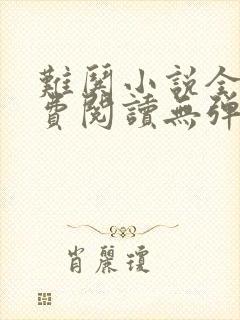 難閱小說全
費閱讀無彈
肖麗瓊